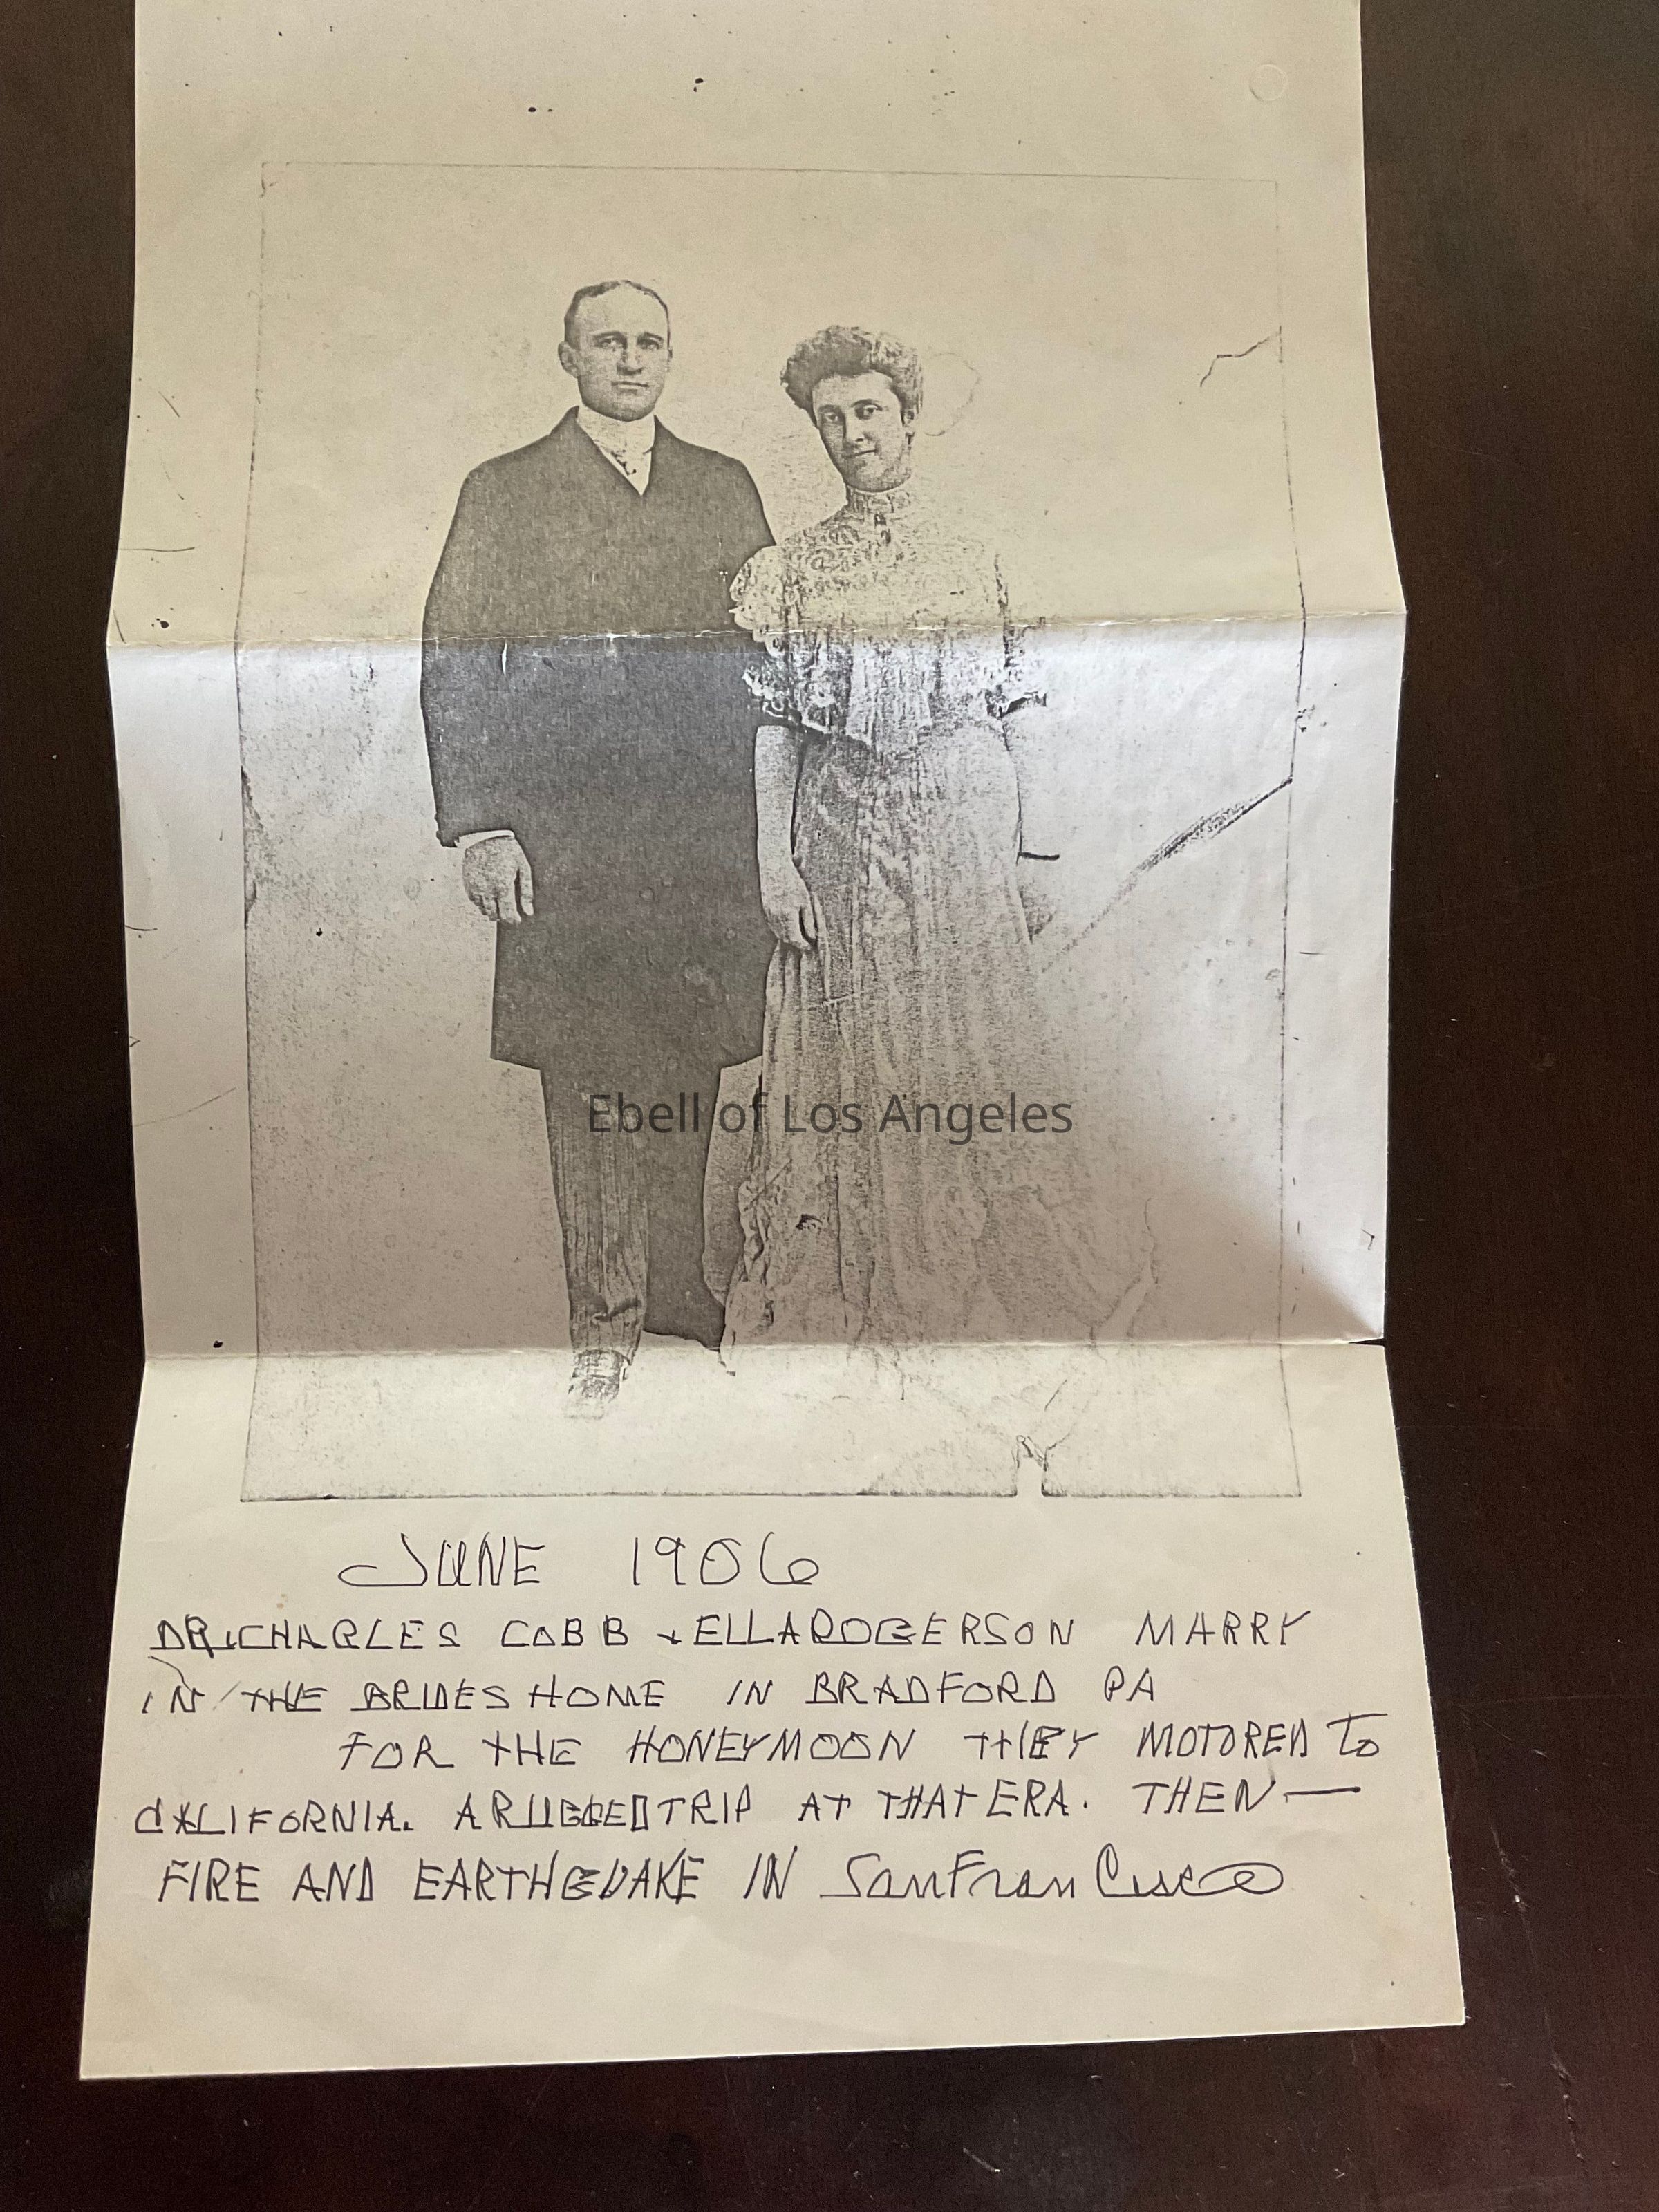 Ebell of Los Angeles
JUNE 1906
DR. CHARLES COBB & ELLA ROGERSON MARRY
IN THE BRIDES HOME IN BRADFORD PA
FOR THE HONEYMOON THEY MOTORED TO
CALIFORNIA. A RUGGED TRIP AT THAT ERA. THEN —
FIRE AND EARTHQUAKE IN San Francisco